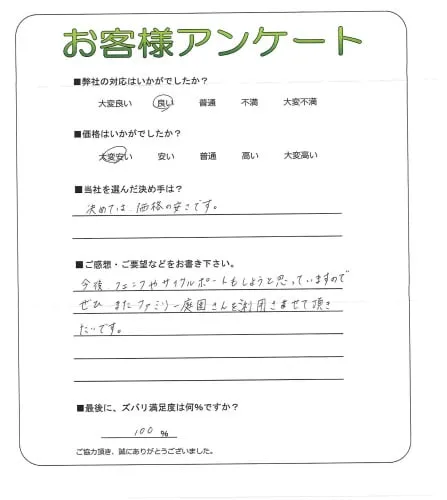 お客様アンケート
■弊社の対応はいかがでしたか?
大変良い 良い 普通 不満 大変不満
■価格はいかがでしたか?
大変安い 安い 普通 高い 大変高い
■当社を選んだ決め手は?
決めては 価格の安さです。
■ご感想・ご要望などをお書き下さい。
今後 フェンフやサイクルポートもしようと思っていますので
ぜひ またファミリー庭園さんを利用させて頂き
たいです。
■最後に、ズバリ満足度は何%ですか?
100 %
ご協力頂き、誠にありがとうございました。